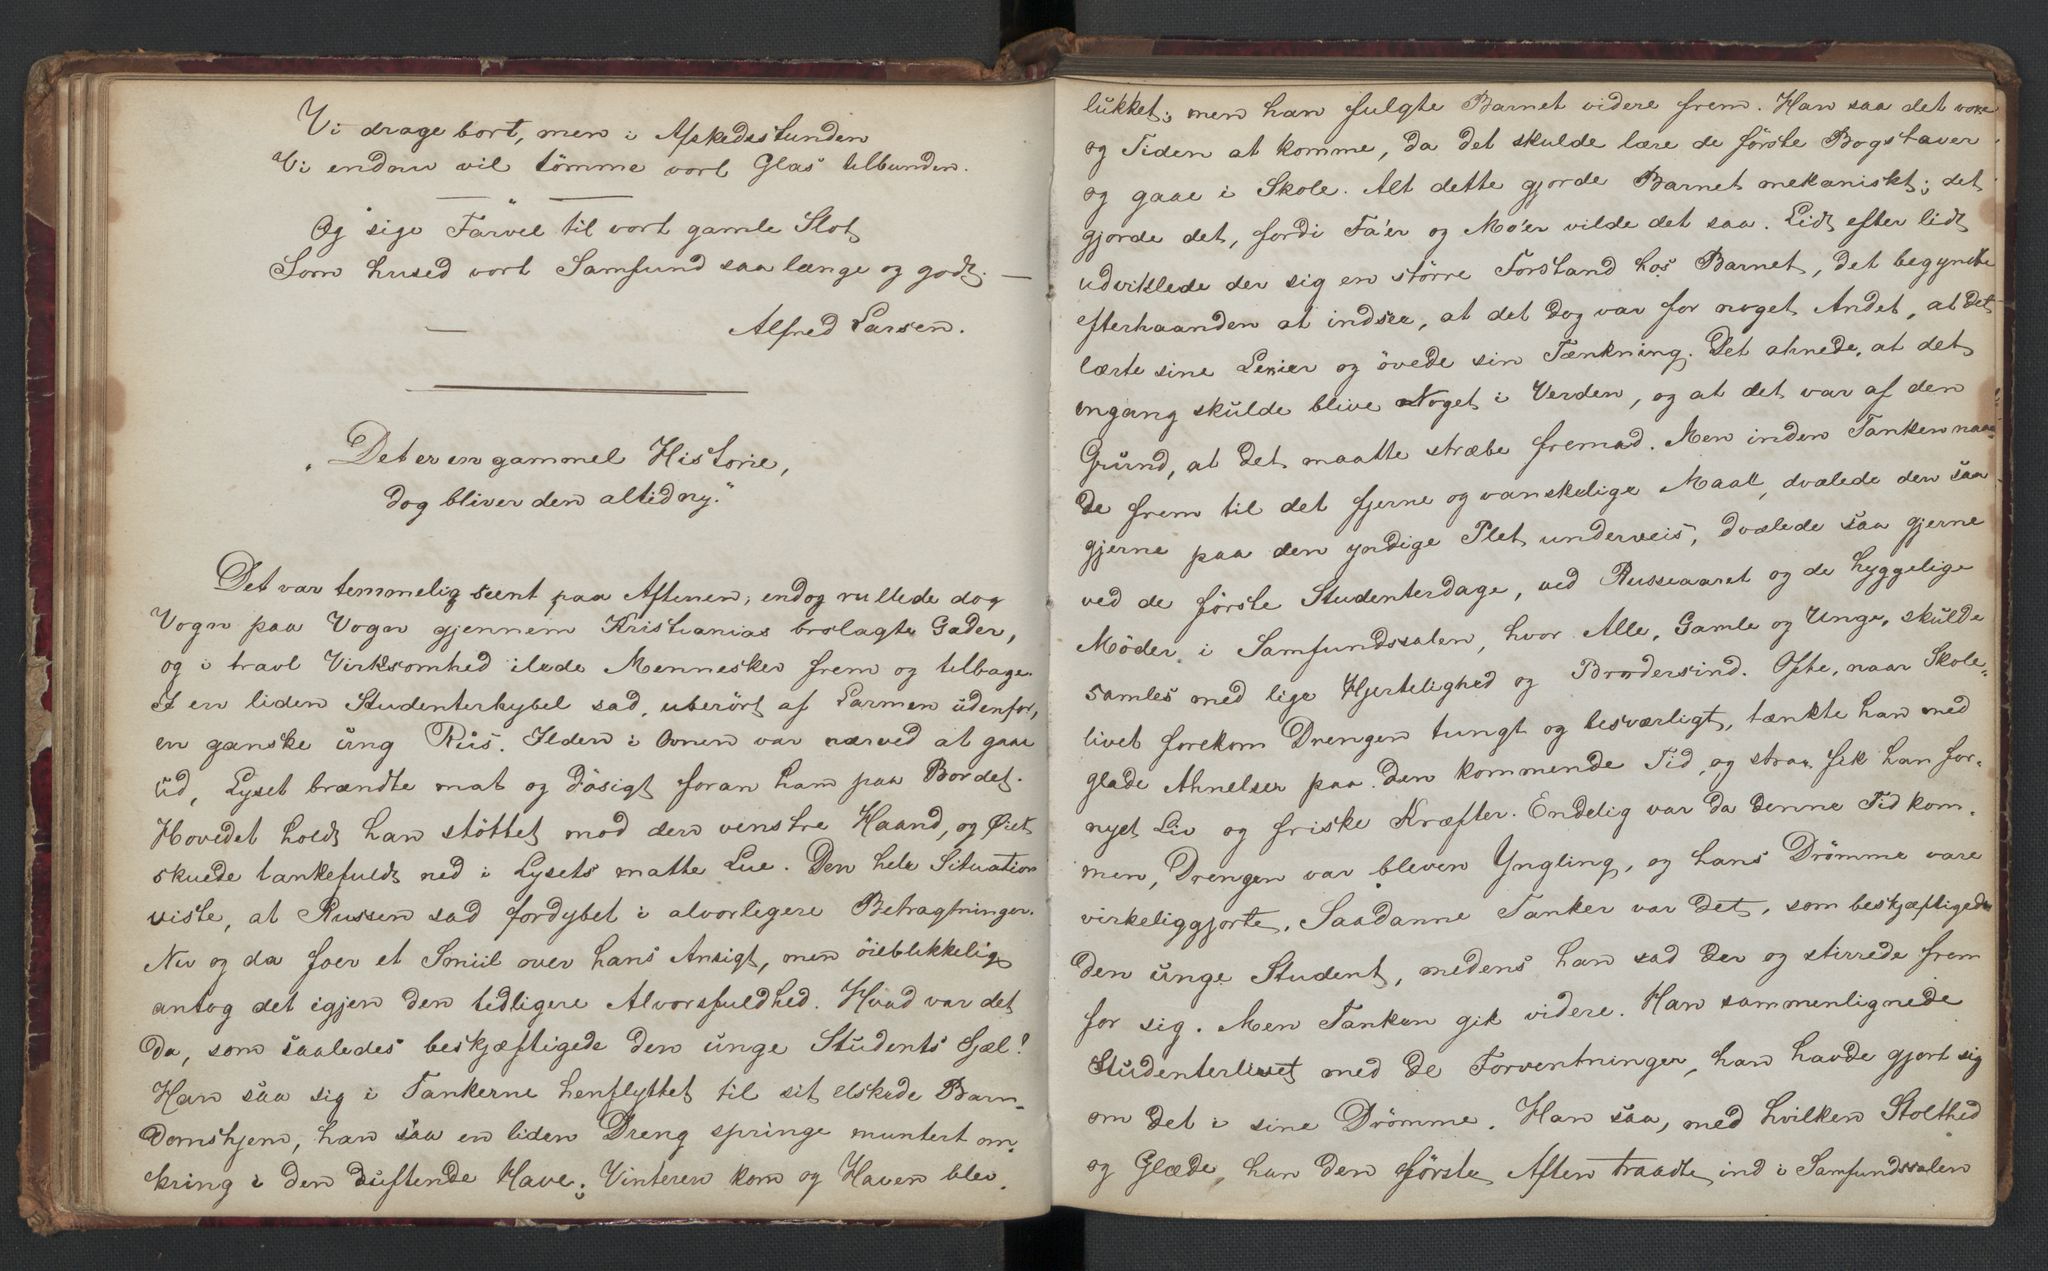 Vi drage bort, men i Afskedsstunden
Vi endnu vil tömme vort Glas tilbunden.
Og sige Farvel til vort gamle Slot
Som huset vort Samfund saa længe og godt. —
Alfred Larsen.
„Det er en gammel Historie,
dog bliver den altid ny."
Det var temmelig seent paa Aftenen; endog rullede dog
Vogn paa Vogn gjennem Kristianias brolagte Gader,
og i travl Virksomhed ilede Mennesker frem og tilbage.
I en liden Studenterhybel sad, uberørt af Larmen udenfor,
en ganske ung Rus. Ilden i Ovnen var nærved at gaae
ud, Lyset brændte mat og dösigt foran ham paa Bordet.
Hovedet holdt han støttet mod den venstre Haand, og Øiet
skuede tankefuldt ned i Lysets matte Lue. Den hele Situation
viste, at Russen sad fordybet i alvorligere Betragtninger.
Nu og da foer et Smiil over hans Ansigt, men öieblikkelig
antog det igjen den tidligere Alvorsfuldhed. Hvad var det
da, som saaledes beskjæftigede den unge Students Sjæl!
Han saa sig i Tankerne henflyttet til sit elskede Barn-
domshjem, han saa en liden Dreng springe muntert om-
kring i den duftende Have; Vinteren kom og Haven blev
lukket; men han fulgte Barnet videre frem. Han saa det voxe
og Tiden at komme, da det skulde lære de förste Bogstaver
og gaae i Skole. Alt dette gjorde Barnet mekaniskt; det
gjorde det, fordi Fa'er og Mo'er vilde det saa. Lidt efter lidt
udviklede der sig en större Forstand hos Barnet, det begyndte
efterhaanden at indsee, at det dog var for noget Andet, at det
lærte sine Lexier og övede sin Tænkning. Det ahnede, at det
engang skulde blive Noget i Verden, og at det var af den
Grund, at det maatte stræbe fremad. Men inden Tanken naae-
de frem til det fjerne og vanskelige Maal, dvælede den saa
gjerne paa den yndige Plet underveis, dvælede saa gjerne
ved de første Studenterdage, ved Russeaaret og de hyggelige
Møder i Samfundssalen, hvor Alle, Gamle og Unge, skulde
samles med lige Hjertelighed og Brodersind. Ofte, naar Skole-
livet forekom Drengen tungt og besværligt, tænkte han med
glade Ahnelser paa den kommende Tid, og strax fik han for-
nyet Liv og friske Kræfter. Endelig var da denne Tid kom-
men, Drengen var bleven Yngling, og hans Drömme vare
virkeliggjorte. Saadanne Tanker var det, som beskjæftigede
den unge Student, medens han sad der og stirrede frem
for sig. Men Tanken gik videre. Han sammenlignede
Studenterlivet med de Forventninger, han havde gjort sig
om det i sine Drömme. Han saa, med hvilken Stolthed
og Glæde, han den første Aften traadte ind i Samfundssalen